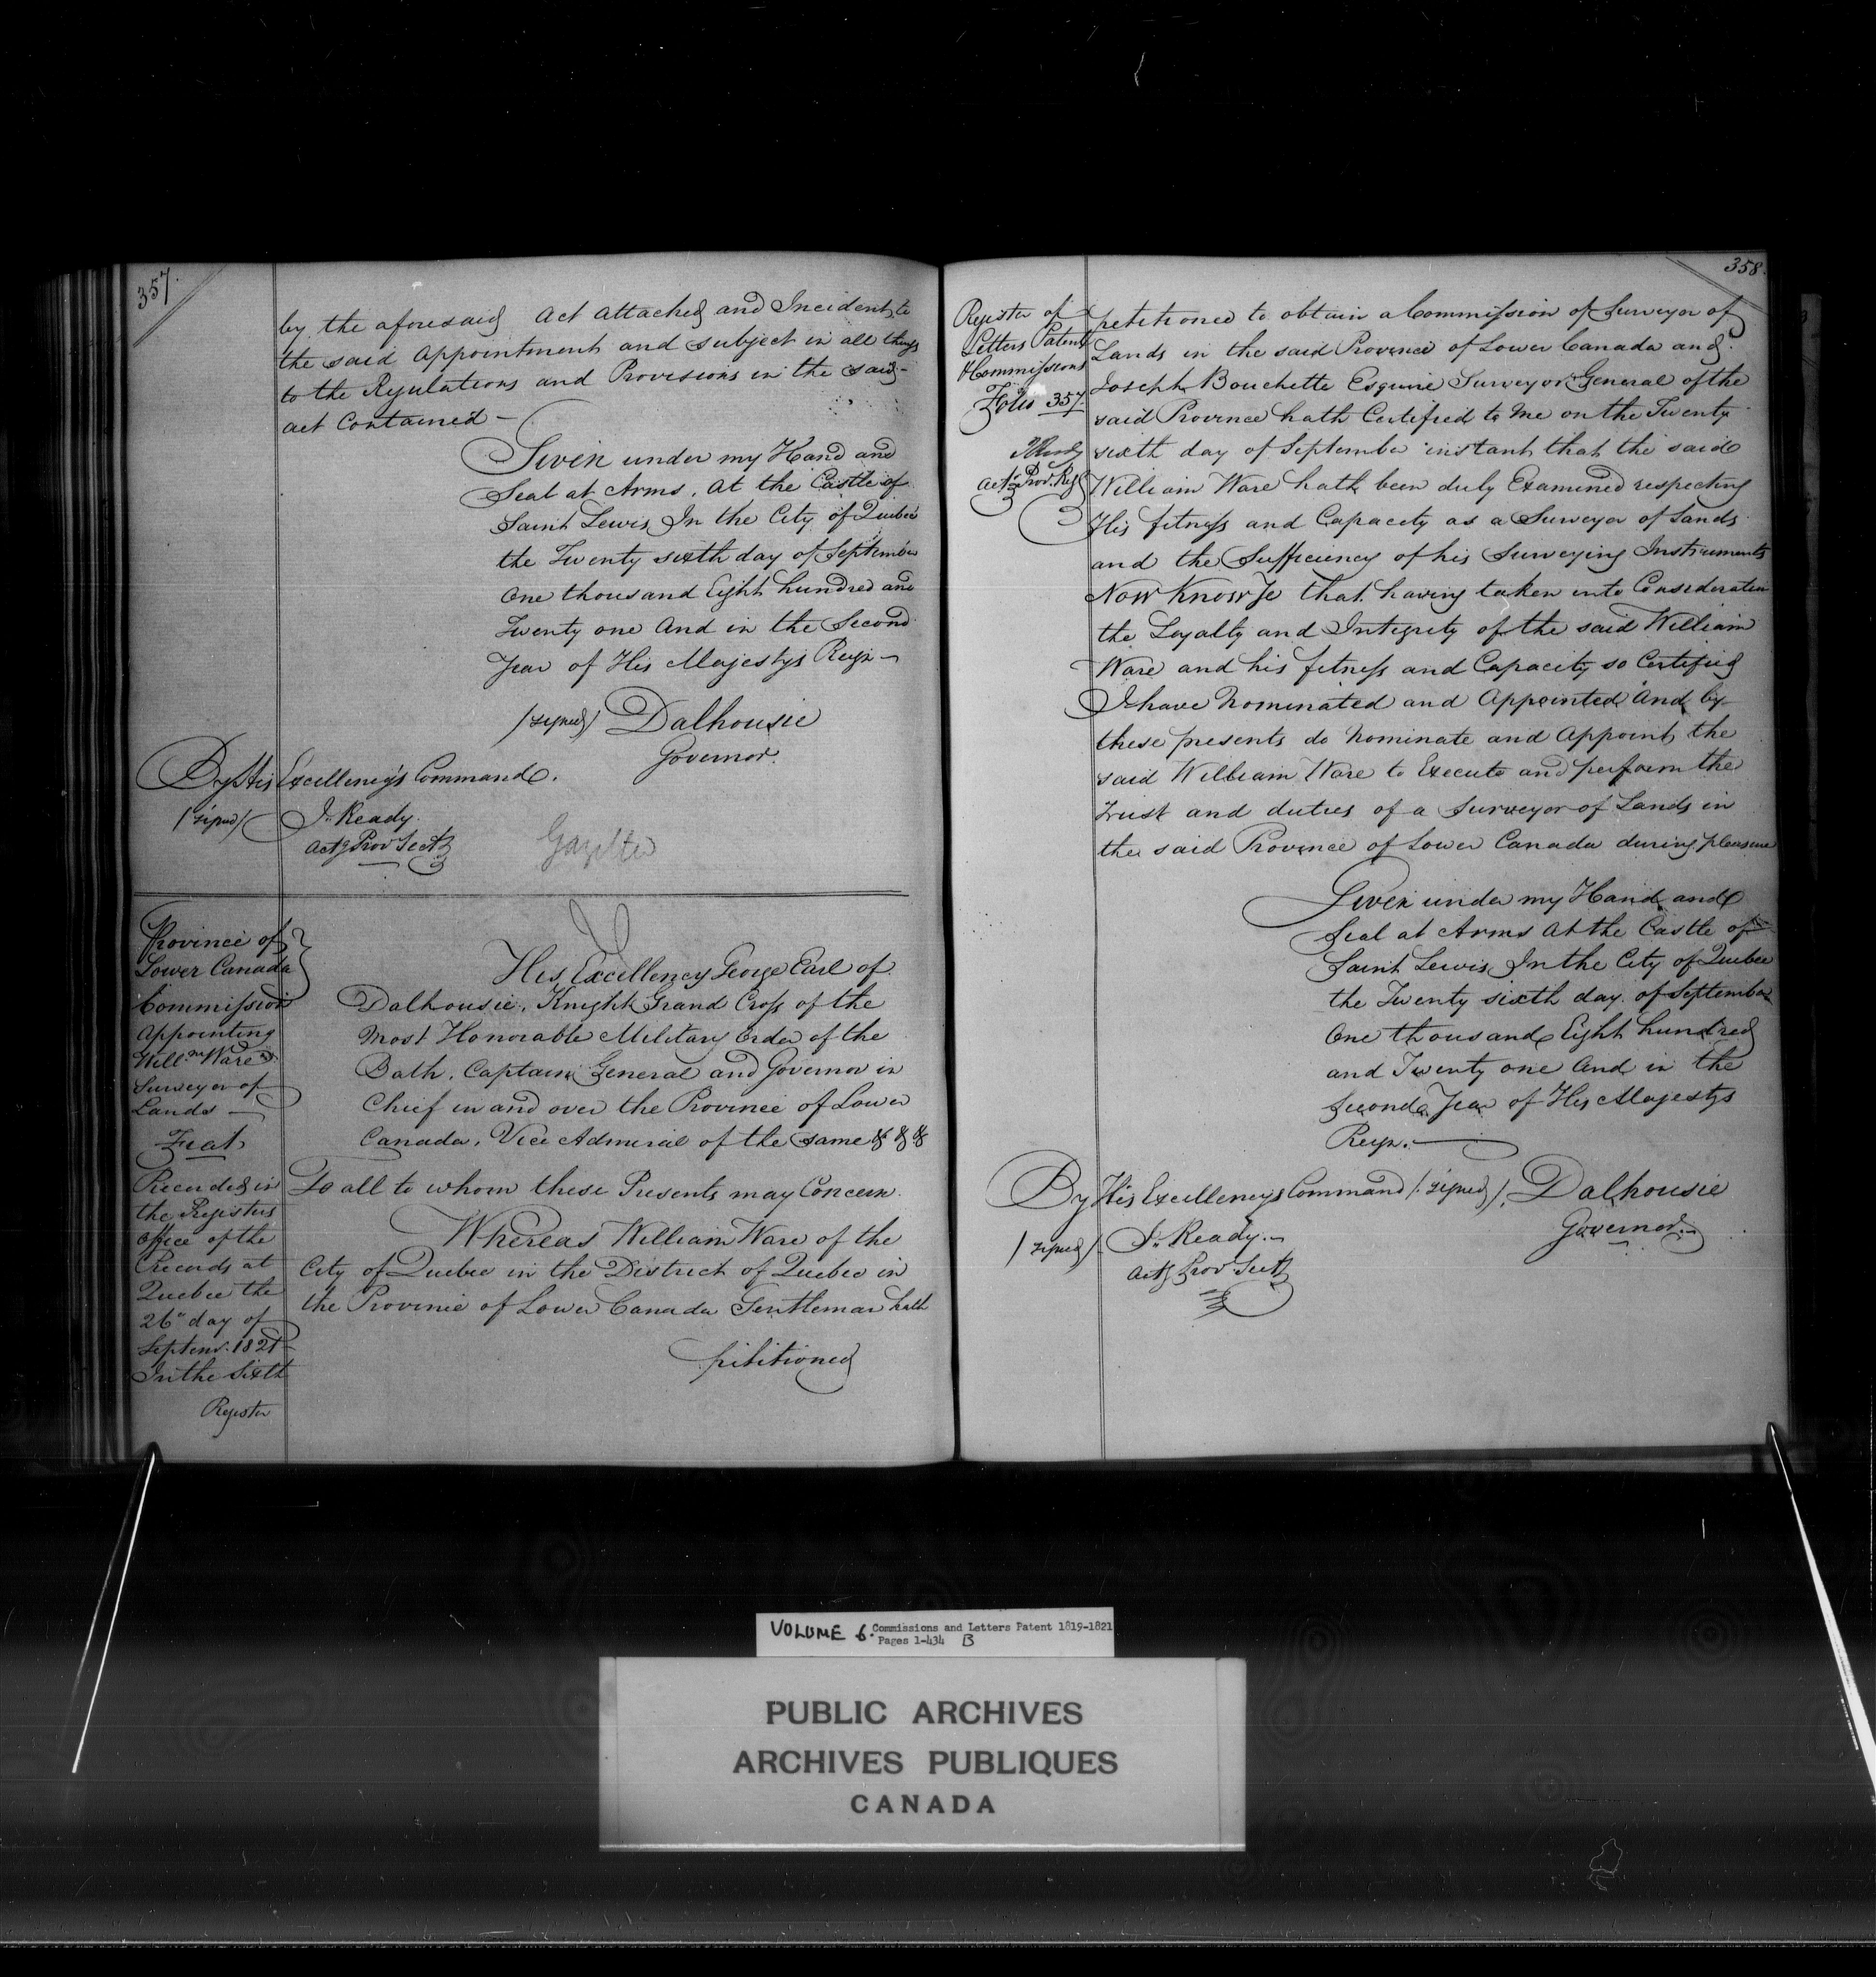 357.
by the aforesaid Act attached and Incident to
the said Appointment and subject in all things
to the Regulations and Provisions in the said
act Contained —
Given under my Hand and
Seal at Arms, At the Castle of
Saint Lewis In the City of Quebec
the Twenty sixth day of September
One thousand Eight hundred and
Twenty one And in the Second
Year of His Majestys Reign —
(signed) Dalhousie
Governor.
By His Excellency's Command.
(signed) J. Ready.
Actg Prov Secty
Gazette
Province of
Lower Canada
Commission
Appointing
Willm Ware
Surveyor of
Lands —
Fiat
Recorded in
the Registers
Office of the
Records at
Quebec the
26" day of
Septemr. 1821
In the Sixth
Register
His Excellency George Earl of
Dalhousie, Knight Grand Cross of the
Most Honorable Military Order of the
Bath, Captain General and Governor in
Chief in and over the Province of Lower
Canada, Vice Admiral of the Same & & &
To all to whom these Presents may Concern.
Whereas William Ware of the
City of Quebec in the District of Quebec in
the Province of Lower Canada Gentleman hath
petitioned
358.
Register of
Letters Patent
& Commissions
Folio 357.
Actg Prov. Reg
petitioned to obtain a Commission of Surveyor of
Lands in the said Province of Lower Canada and
Joseph Bouchette Esquire Surveyor General of the
said Province hath Certified to Me on the Twenty
sixth day of September instant that the said
William Ware hath been duly Examined respecting
His fitness and Capacity as a Surveyor of Lands
and the Sufficiency of his Surveying Instruments
Now Know Ye that having taken into Consideration
the Loyalty and Integrity of the said William
Ware and his fitness and Capacity so Certified
I have Nominated and Appointed And by
these presents do Nominate and Appoint the
said William Ware to Execute and perform the
Trust and duties of a Surveyor of Lands in
the said Province of Lower Canada during pleasure
Given under my Hand and
Seal at Arms At the Castle of
Saint Lewis In the City of Quebec
the Twenty sixth day of September
One thousand Eight hundred
and Twenty one And in the
Second Year of His Majestys
Reign.
By His Excellencys Command (signed) Dalhousie
Governor.
(signed) J. Ready.
Actg Prov Secty
VOLUME 6. Commissions and Letters Patent 1819-1821
Pages 1-434 B
PUBLIC ARCHIVES
ARCHIVES PUBLIQUES
CANADA